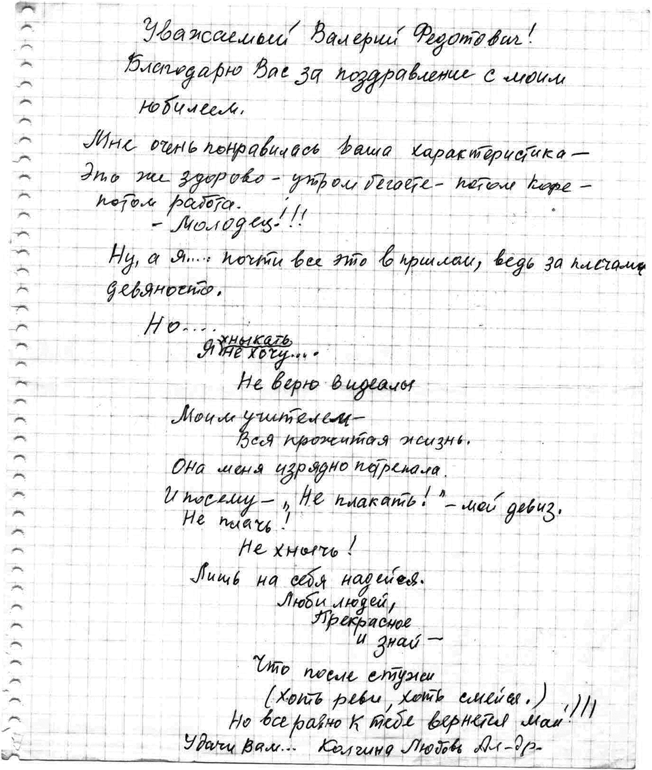 Уважаемый Валерий Федотович!
Благодарю Вас за поздравление с моим
юбилеем.
Мне очень понравилась ваша характеристика –
Это же здорово – утром бегаете – потом кофе –
потом работа.
– Молодец!!!
Ну, а я.... почти все это в прошлом, ведь за плечами
девяносто.
Но....
хныкать
Я не хочу....
Не верю в идеалы
Моим учителем –
Вся прожитая жизнь.
Она меня изрядно потрепала.
И посему – „Не плакать!" – мой девиз.
Не плачь!
Не хнычь!
Лишь на себя надейся.
Люби людей,
Прекрасное
и знай –
Что после стужи
(хоть реви, хоть смейся.)
Но все равно к тебе вернется май!!!
Удачи Вам... Колгина Любовь Ал-др-